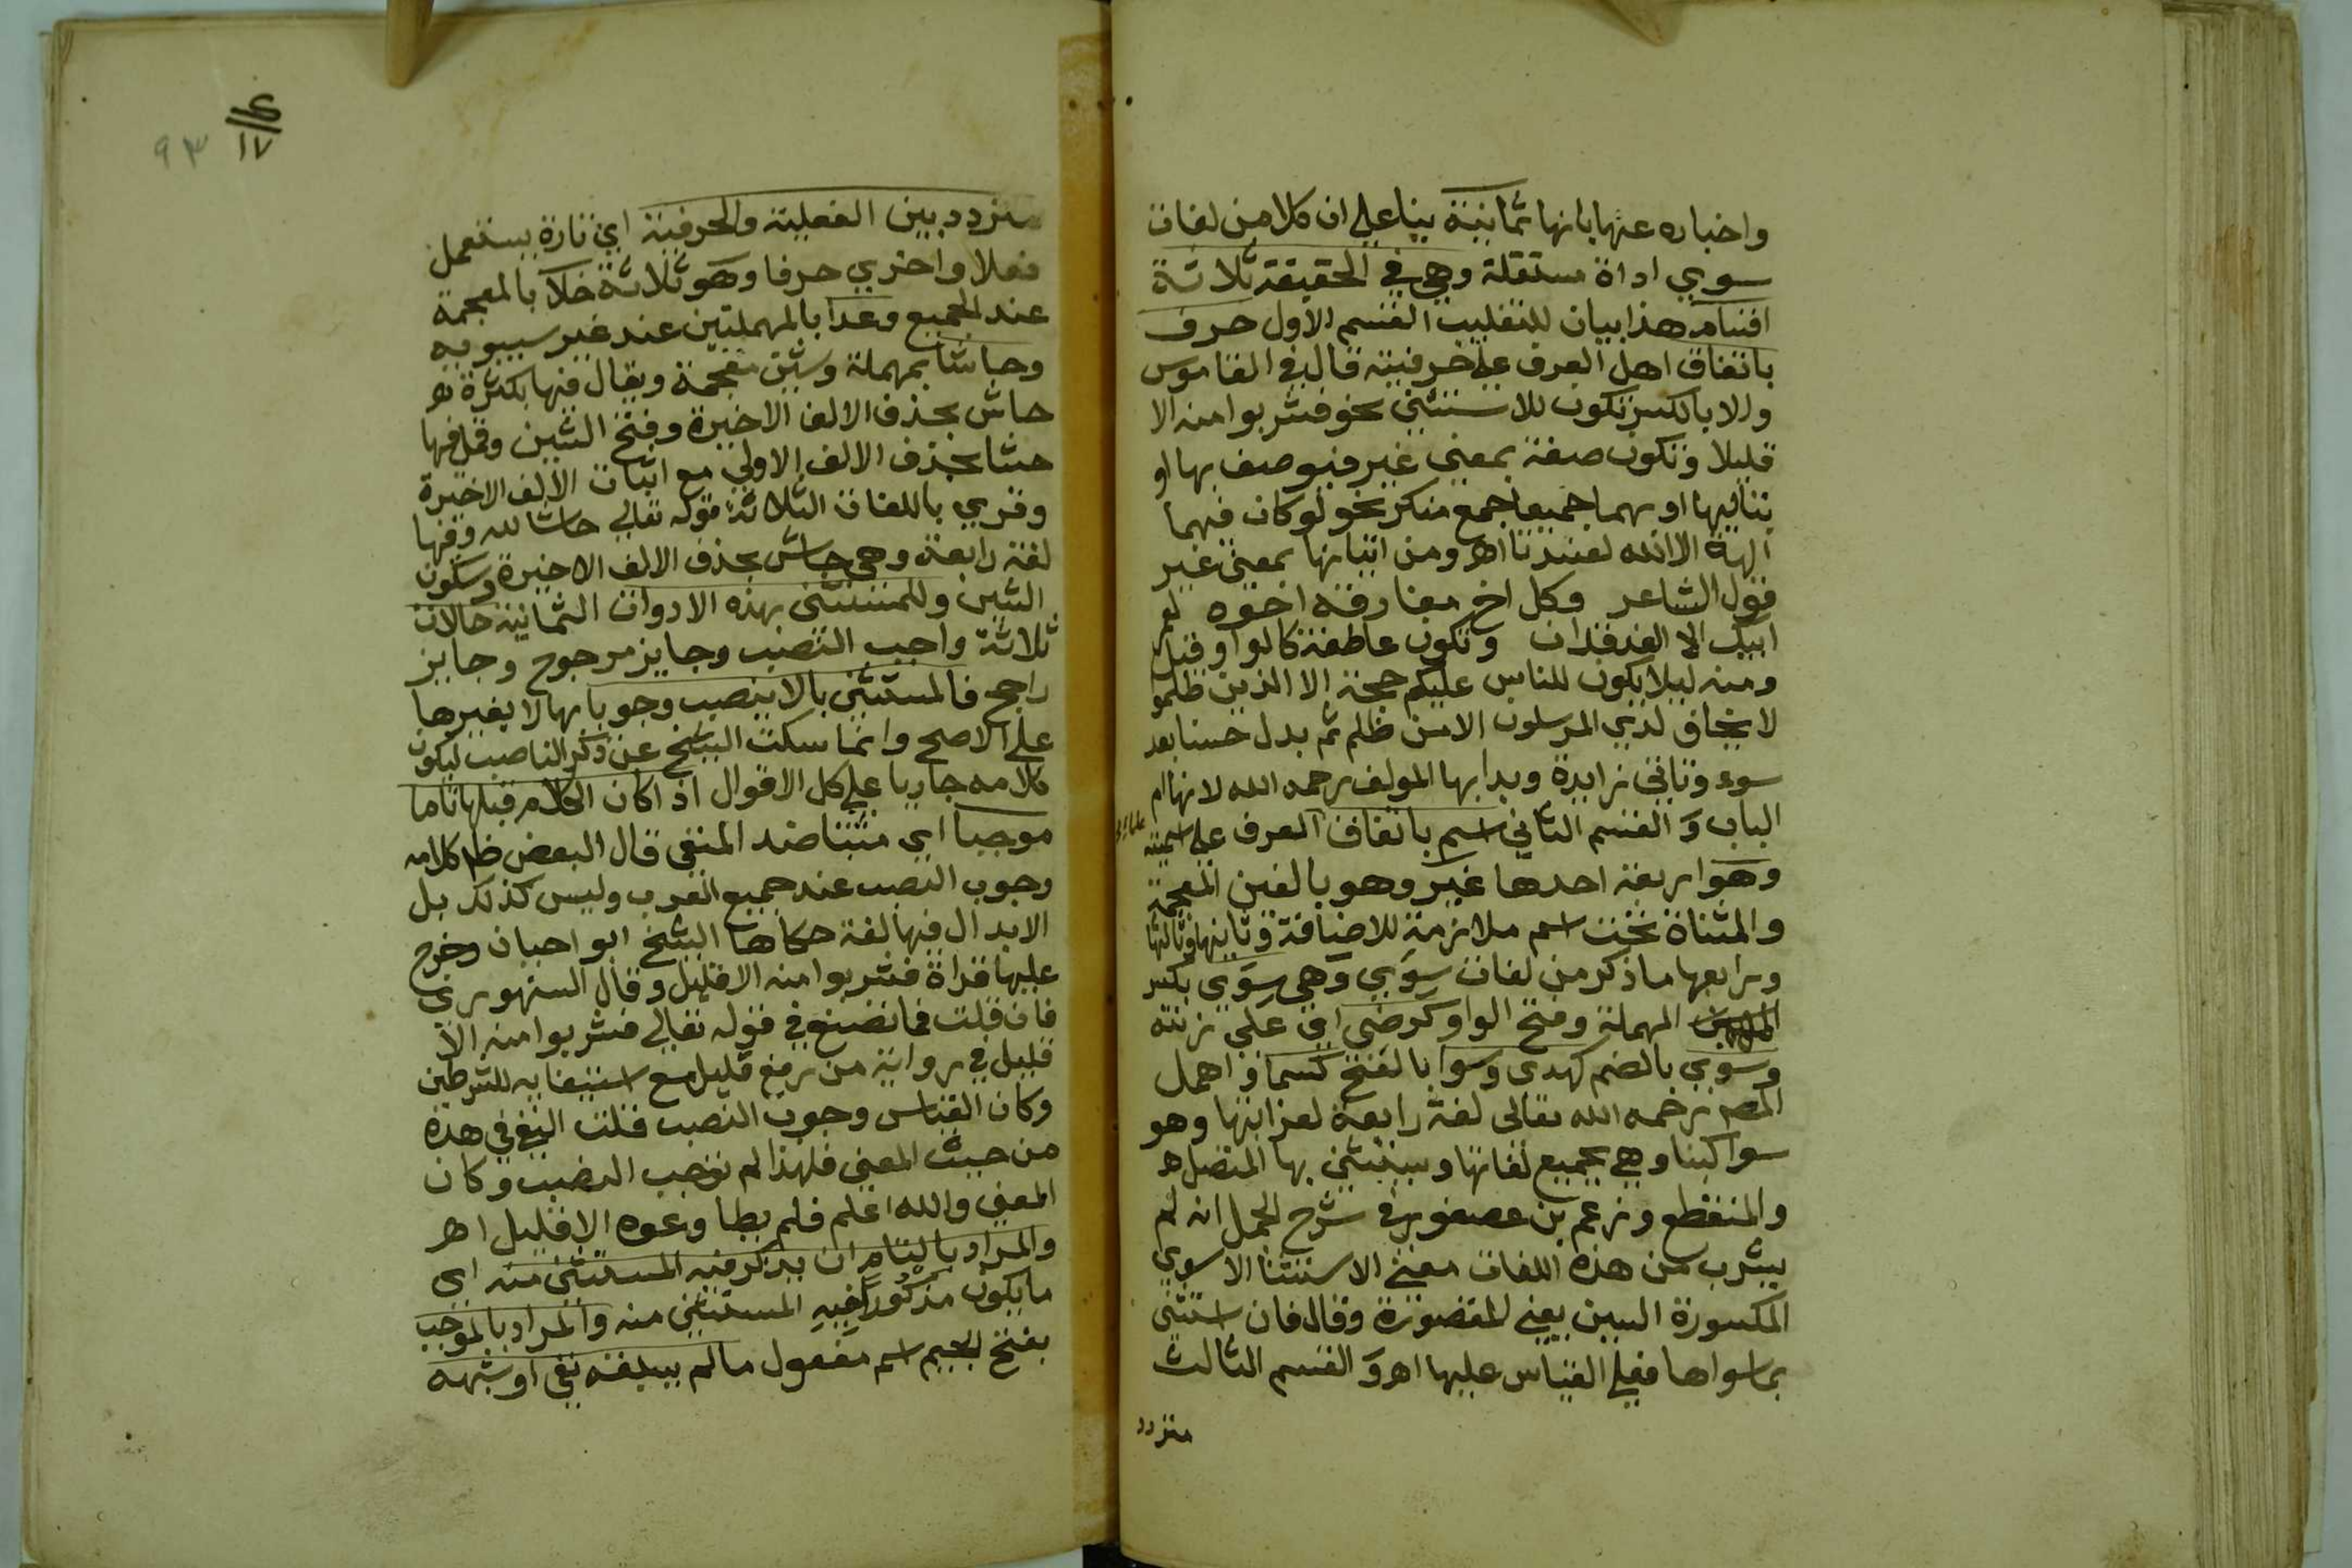 واخباره عنها بانها ثمانية بنا على ان كلا من لغات
سوي اداة مستقلة وهي في الحقيقة ثلاثة
اقسام هذا بيان للتغليب القسم الاول حرف
باتفاق اهل العرف على حرفيته قال في القاموس
والا بالكسر تكون للاستثني نحو فشربوا منه الا
قليلا وتكون صفة بمعني غير فيوصف بها او
بتاليها او بهما جميعا جمع منكر نحو لو كان فيهما
الهة الا الله لفسدتا اهر ومن اتيانها بمعني غير
قول الشاعر وكل اخ مفارقه اخوه لعمر
ابيك الا الفرقدان وتكون عاطفة كالواو قيل
ومنه ليلا يكون للناس عليكم حجة الا الذين ظلموا
لا يخاف لدي المرسلون الا من ظلم ثم بدل حسنا بعد
سوء وتاتي زايدة وبدا بها المولف رحمه الله لانها ام
الباب وَ القسم الثاني اسم باتفاق العرف على اسميته
وهو اربعة احدها غير وهو بالغين المعجمة
والمثناة تحت اسم ملازمة للاضافة وثانيها وثالثها
ورابعها ما ذكر من لغات سِوَي وَهي سِوَي بكسر
المهملة وفتح الواو كرضي اي على زنته
وسوي بالضم كهدي وسوا بالفتح كسما واهمل
المصر رحمه الله تعالى لغة رابعة لغرابتها وهو
سوا كبنا وهي بجميع لغاتها ويستثني بها المتصل
والمنقطع وزعم بن عصفور في شرح الجمل انه لم
يشرب من هذه اللغات معني الاستثنا الا سوي
المكسورة السين يعني المقصورة وقال فان استثني
بما سواها فعلى القياس عليها اهر وَ القسم الثالث
متردد
متردد بين الفعلية والحرفية اي تارة يستعمل
فعلا واخري حرفا وهو ثلاثة خلا بالمعجمة
عند الجميع وعدا بالمهملتين عند غير سيبويه
وحاشا بمهملة وشين معجمة ويقال فيها بكثرة
حاش بحذف الالف الاخيرة وفتح الشين وقل فيها
حشا بحذف الالف الاولي مع اثبات الالف الاخيرة
وقري باللغات الثلاثة قوله تعالي حاشا لله وفيها
لغة رابعة وهي حاش بحذف الالف الاخيرة وسكون
الشين وللمستثني بهذه الادوات الثمانية حالات
ثلاثة واجب النصب وجايز مرجوح وجايز
راجح فالمستثني بالا ينصب وجوبا بها لا بغيرها
على الاصح وانما سكت الشيخ عن ذكر الناصب ليكون
كلامه جاريا على كل الاقوال اذا كان الكلام قبلها تاما
موجبا اي مثبتا ضد المنفي قال البعض ظ كلامه
وجوب النصب عند جميع العرب وليس كذلك بل
الابدال فيها لغة حكاها الشيخ ابو احبان وخرج
عليها قراة فشربوا منه الا قليل وقال السنهوري
فان قلت فما تصنع في قوله تعالي فشربوا منه الا
قليل في رواية من رفع قليل مع استيفايه للشرطين
وكان القياس وجوب النصب قلت النفي في هذه
من حيث المعني فلهذا لم توجب النصب وكان
المعني والله اعلم فلم يطاوعوه الا قليل اهر
والمراد بالتام ان يذكر فيه المستثني منه اي
ما يكون مذكوراً فيه المستثني منه والمراد بالموجب
بفتح الجيم اسم مفعول ما لم يسبقه نفي او شبهه
٩٣
١٧